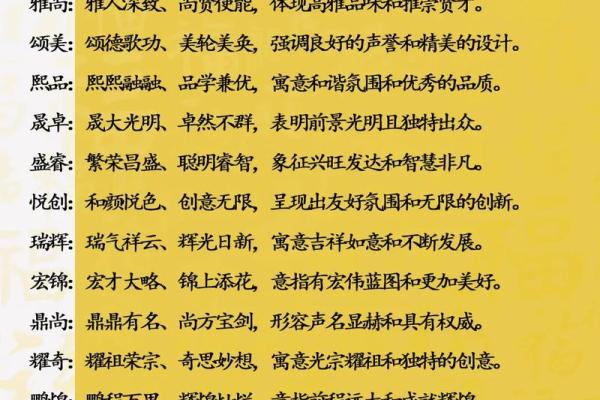 雅尚：雅人深致、尚贤使能，体现高雅品味和推崇贤才。
颂美：颂德歌功、美轮美奂，强调良好的声誉和精美的设计。
熙品：熙熙融融、品学兼优，寓意和谐氛围和优秀的品质。
晟卓：晟大光明、卓然不群，表明前景光明且独特出众。
盛睿：繁荣昌盛、聪明睿智，象征兴旺发达和智慧非凡。
悦创：和颜悦色、创意无限，呈现出友好氛围和无限的创新。
瑞辉：瑞气祥云、辉光日新，寓意吉祥如意和不断发展。
宏锦：宏才大略、锦上添花，意指有宏伟蓝图和更加美好。
鼎尚：鼎鼎有名、尚方宝剑，形容声名显赫和具有权威。
耀奇：耀祖荣宗、奇思妙想，寓意光宗耀祖和独特的创意。
鹏煌：鹏程万里、辉煌灿烂，意指前程远大和成就辉煌。